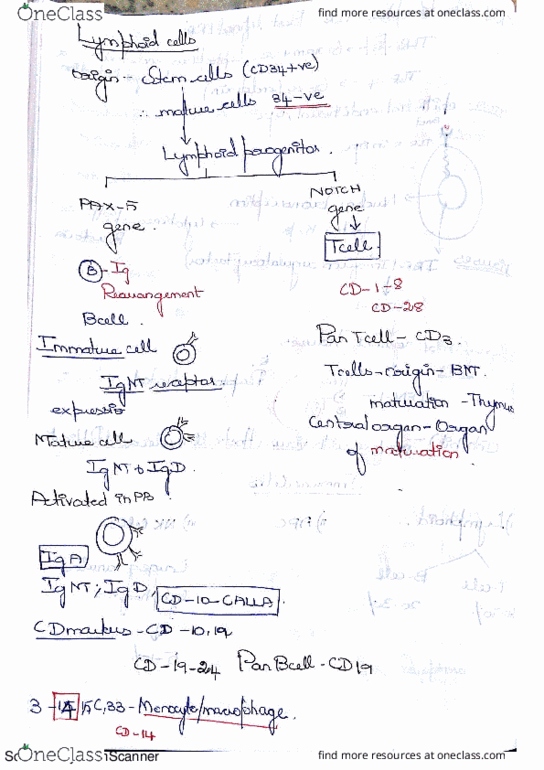 OneClass
find more resources at oneclass.com
Lymphoid cells
origin - Stem cells (CD34+ve)
∴ mature cells 34-ve
Lymphoid progenitor.
PAX-5
gene.
NOTCH
gene
Tcell
B - Ig
Rearrangement
Bcell.
CD-1-8
CD-28
Immature cell
IgM receptor
expressio
Pan Tcell - CD3.
Tcells - origin - BM.
maturation - Thymus
Central organ - Organ
of maturation.
Mature cell
IgM + IgD.
Activated in PB
IgA
IgM; IgD,
CD-10-CALLA.
CD markers - CD-10,19
CD-19-24 Pan Bcell - CD19
3 - 14 15, 33 - Monocyte/macrophage.
CD-14
OneClass
Scanner
find more resources at oneclass.com